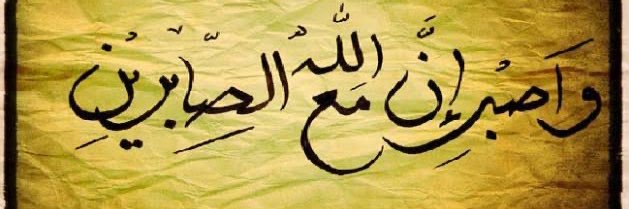 وَاصبِر إِنَّ اللّٰه مَع الصِّابِرِينِ